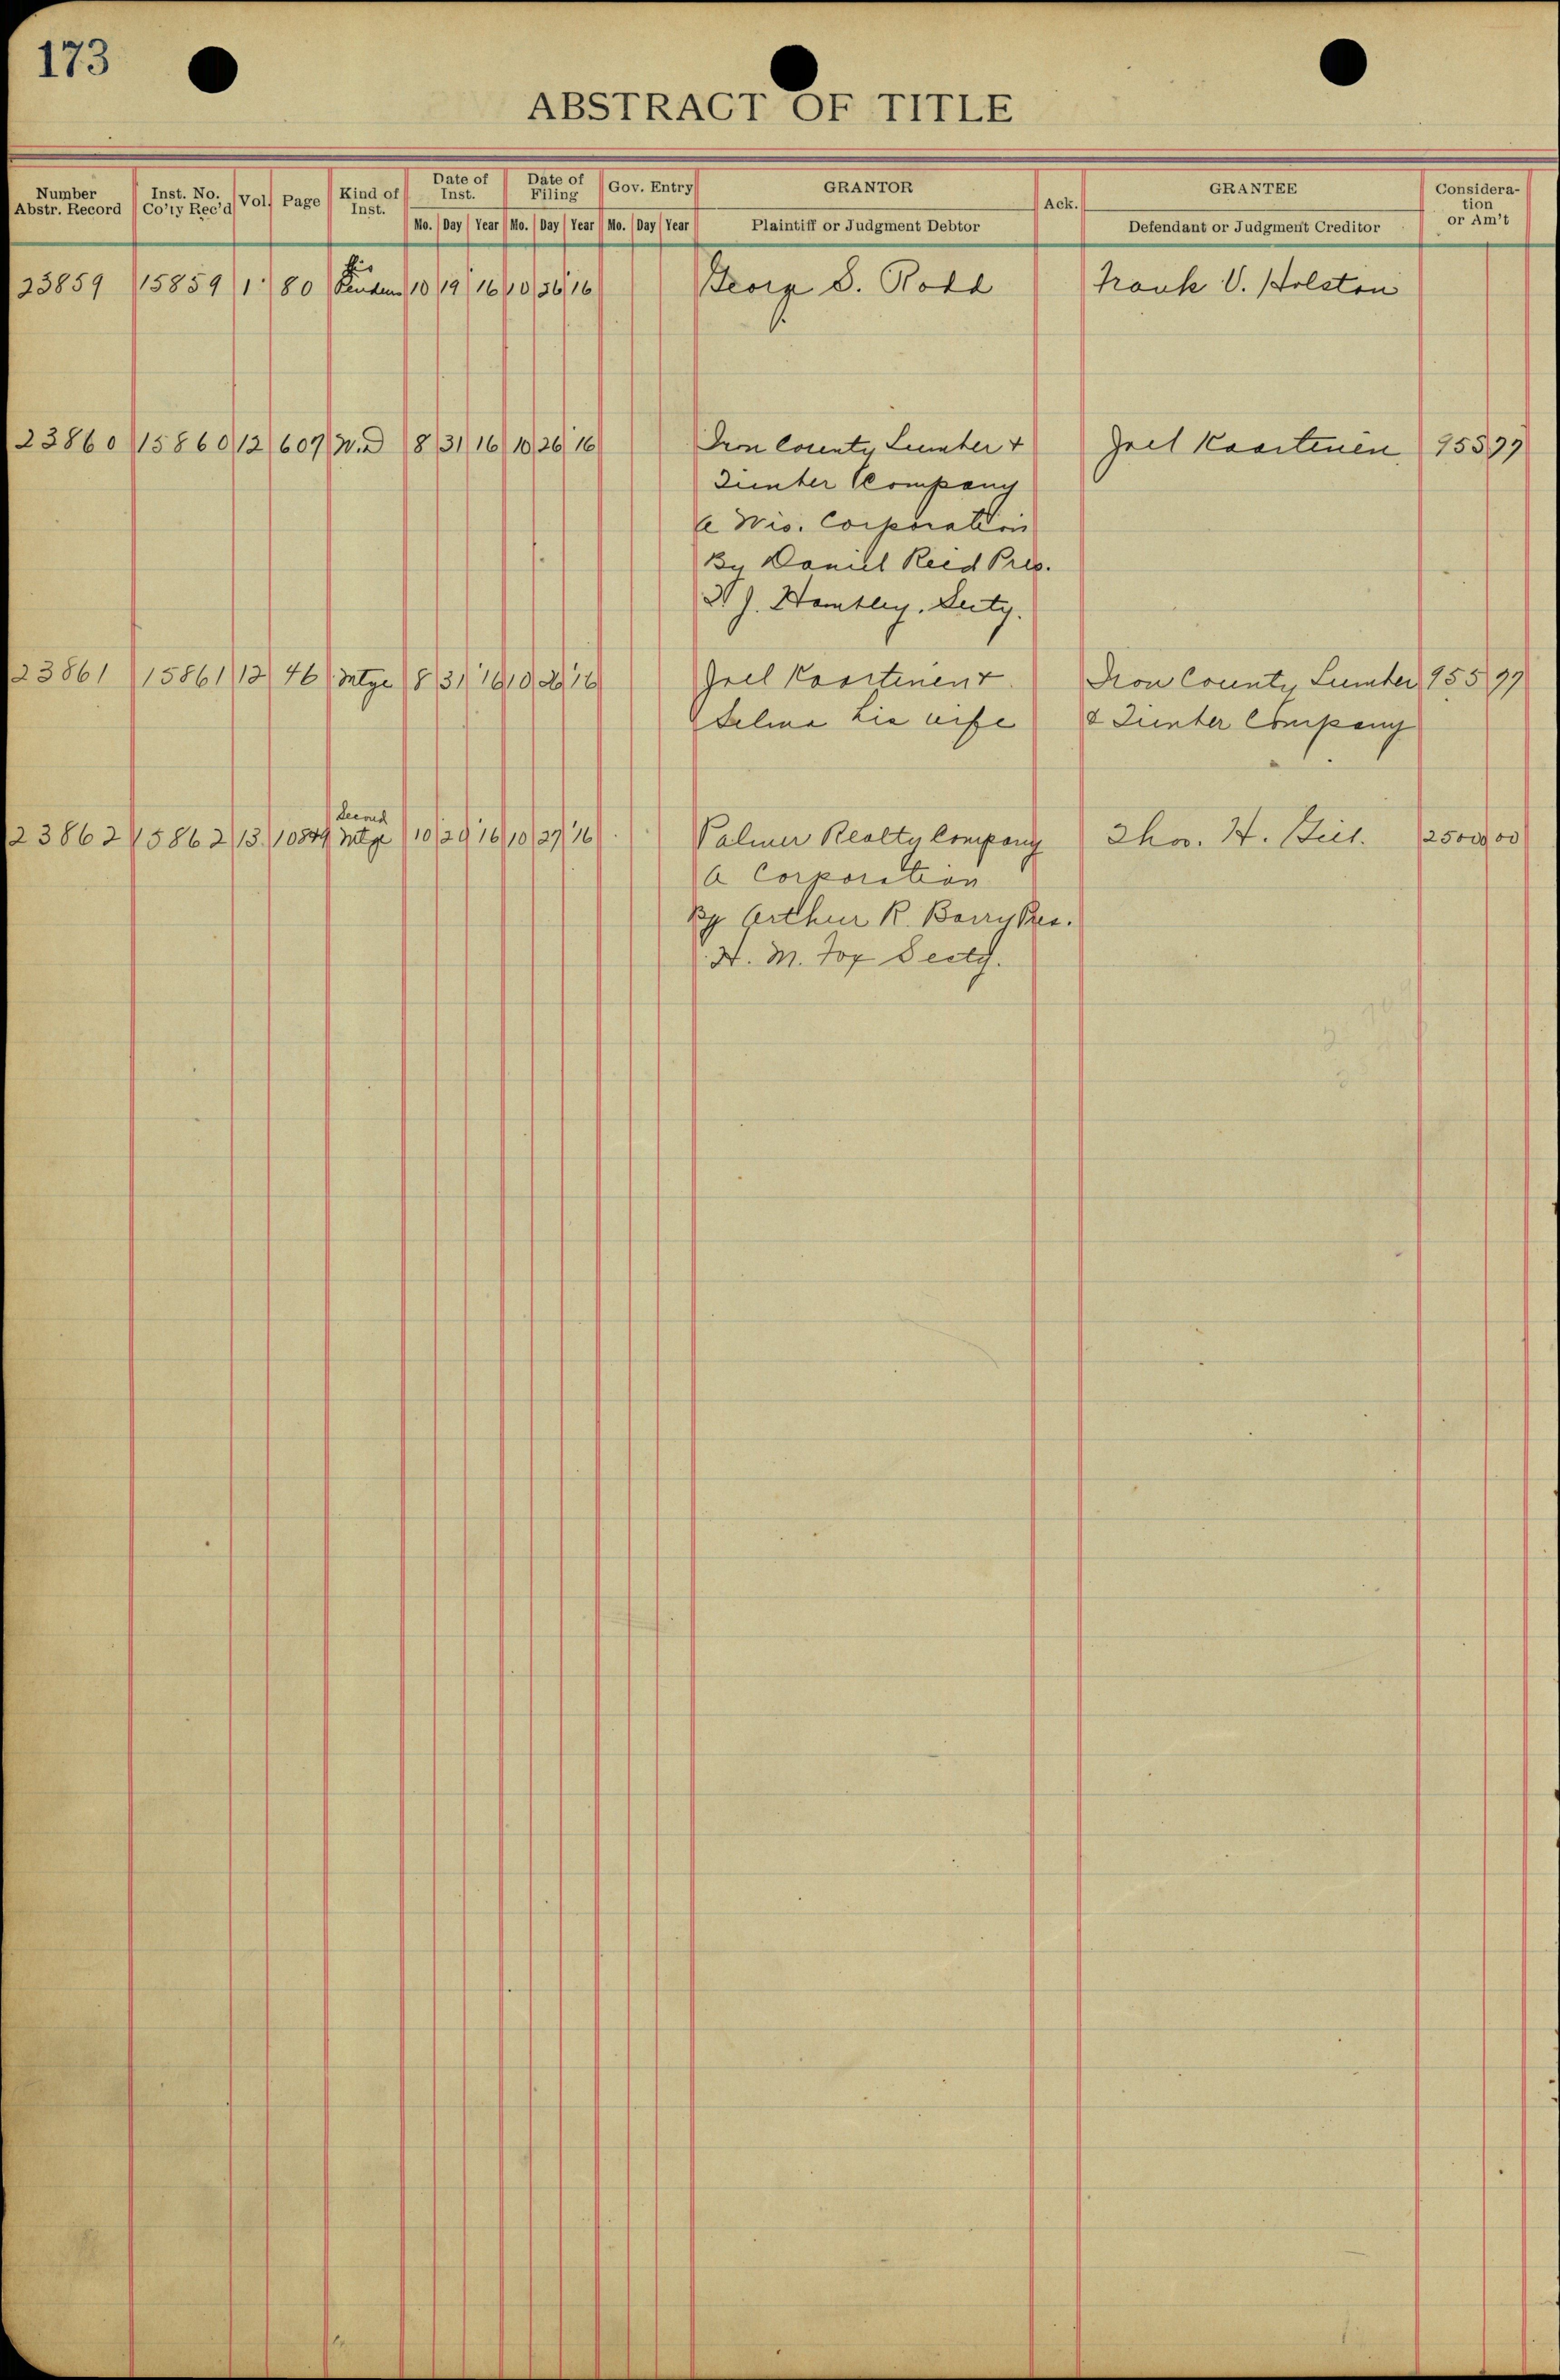 173
ABSTRACT OF TITLE
Number Abstr. Record | Inst. No. Co'ty Rec'd | Vol. | Page | Kind of Inst. | Date of Inst. Mo. Day Year | Date of Filing Mo. Day Year | Gov. Entry Mo. Day Year | GRANTOR Plaintiff or Judgment Debtor | Ack. | GRANTEE Defendant or Judgment Creditor | Consideration or Am't
Lis
23859 15859 1 80 Pendens 10 19 16 10 26 16 George S. Rodd Frank V. Holston
23860 15860 12 607 W.D 8 31 16 10 26 16 Iron County Lumber + Joel Kaartinen 955 97
Timber Company
A Wis. Corporation
By Daniel Reid Pres.
W J. Hambley, Secty.
23861 15861 12 46 Mtge 8 31 16 10 26 16 Joel Kaartinen + Iron County Lumber 955 97
Selma his wife & Timber Company
Second
23862 15862 13 Mtge 10 20 16 10 27 16 Palmer Realty Company Thos. H. 25000 00
A Corporation
By Arthur R. Barry Pres.
H. M. Fox Secty.